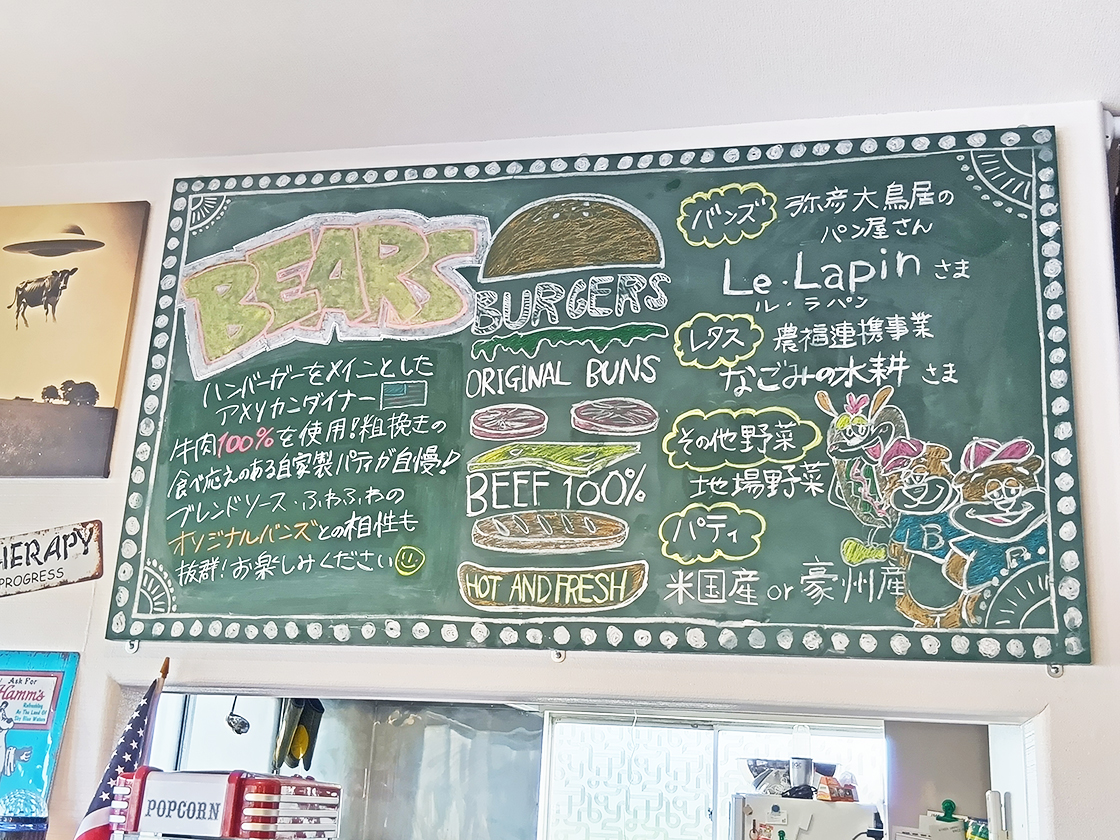 BEARS
BURGERS
ハンバーガーをメインとした
アメリカンダイナー
牛肉100%を使用!粗挽きの
食べ応えのある自家製パティが自慢!
ブレンドソース・ふわふわの
オリジナルバンズとの相性も
抜群!お楽しみください
ORIGINAL BUNS
BEEF 100%
HOT AND FRESH
バンズ
弥彦大鳥屋の
パン屋さん
Le・Lapin さま
ル・ラパン
レタス
農福連携事業
なごみの水耕 さま
その他野菜
地場野菜
パティ
米国産 or 豪州産
B
B.
HERAPY
PROGRESS
Ask For
Hamm's
Refreshing
As The Land Of
Sky Blue Waters
POPCORN